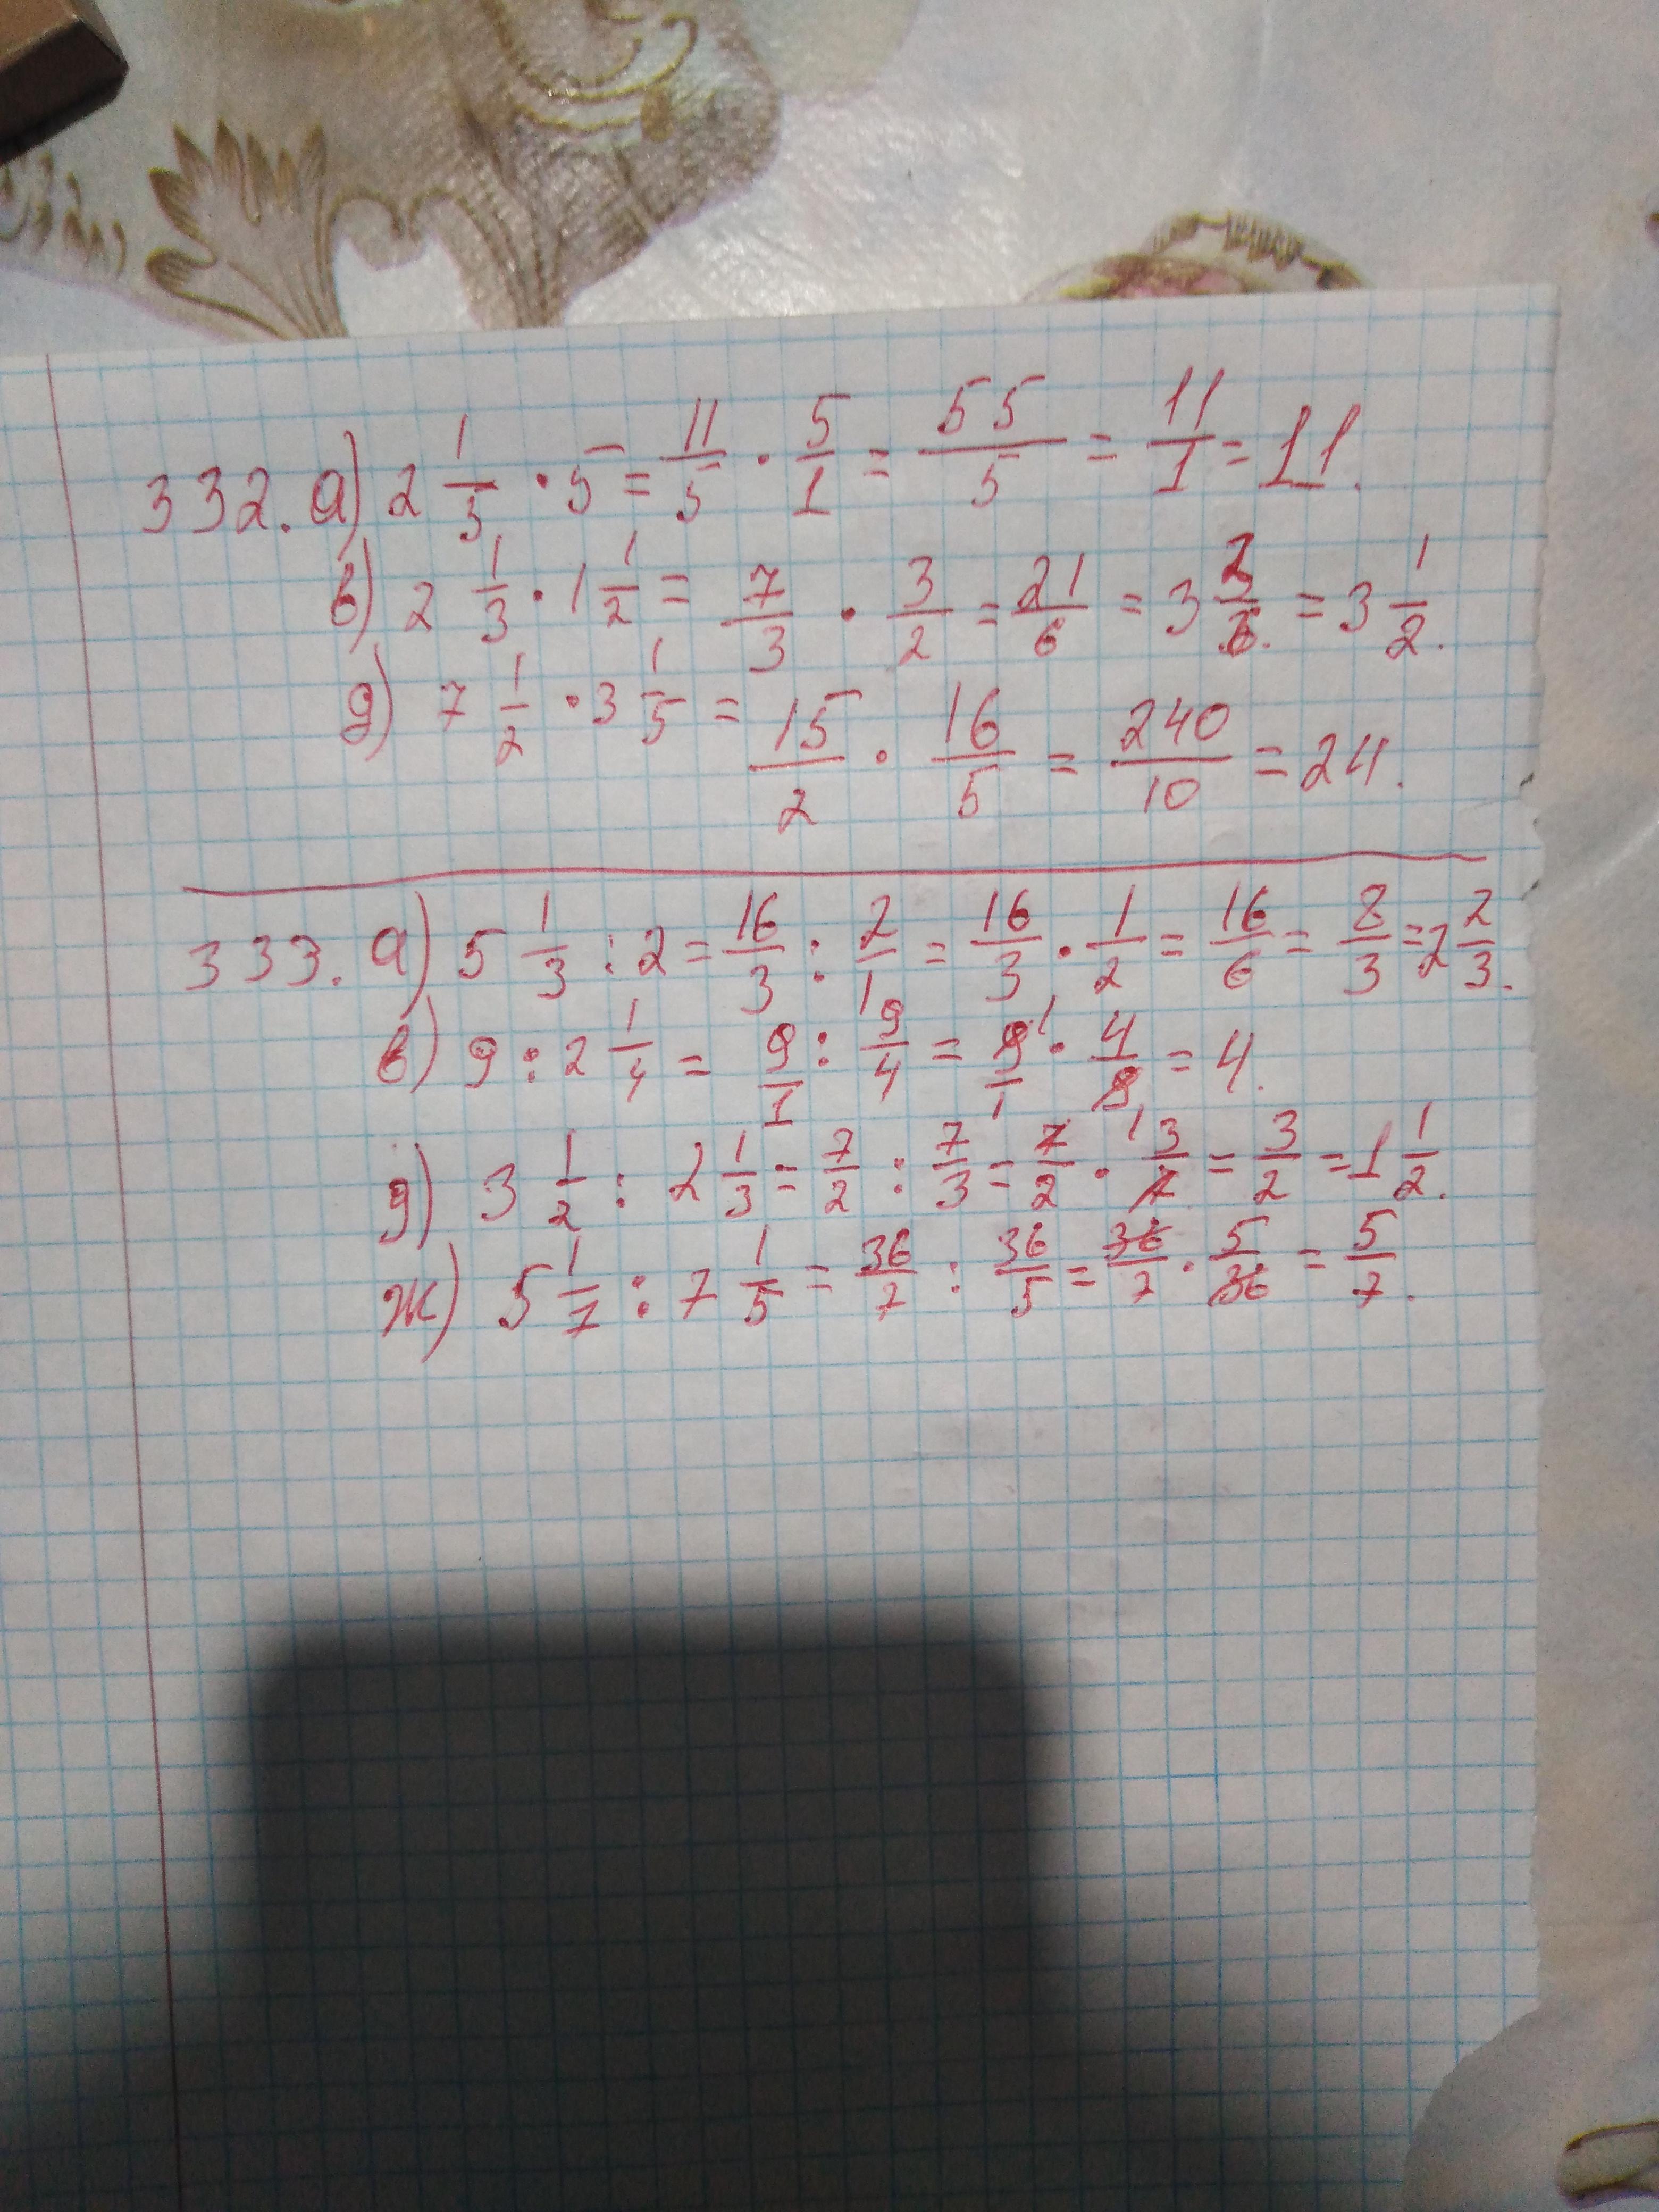 332. а) 2 1/5 · 5 = 11/5 · 5/1 = 55/5 = 11/1 = 11.
в) 2 1/3 · 1 1/2 = 7/3 · 3/2 = 21/6 = 3 3/6 = 3 1/2.
д) 7 1/2 · 3 1/5 = 15/2 · 16/5 = 240/10 = 24.
333. а) 5 1/3 : 2 = 16/3 : 2/1 = 16/3 · 1/2 = 16/6 = 8/3 = 2 2/3.
в) 9 : 2 1/4 = 9/1 : 9/4 = 9/1 · 4/9 = 4.
д) 3 1/2 : 2 1/3 = 7/2 : 7/3 = 7/2 · 3/7 = 3/2 = 1 1/2.
ж) 5 1/7 : 7 1/5 = 36/7 : 36/5 = 36/7 · 5/36 = 5/7.